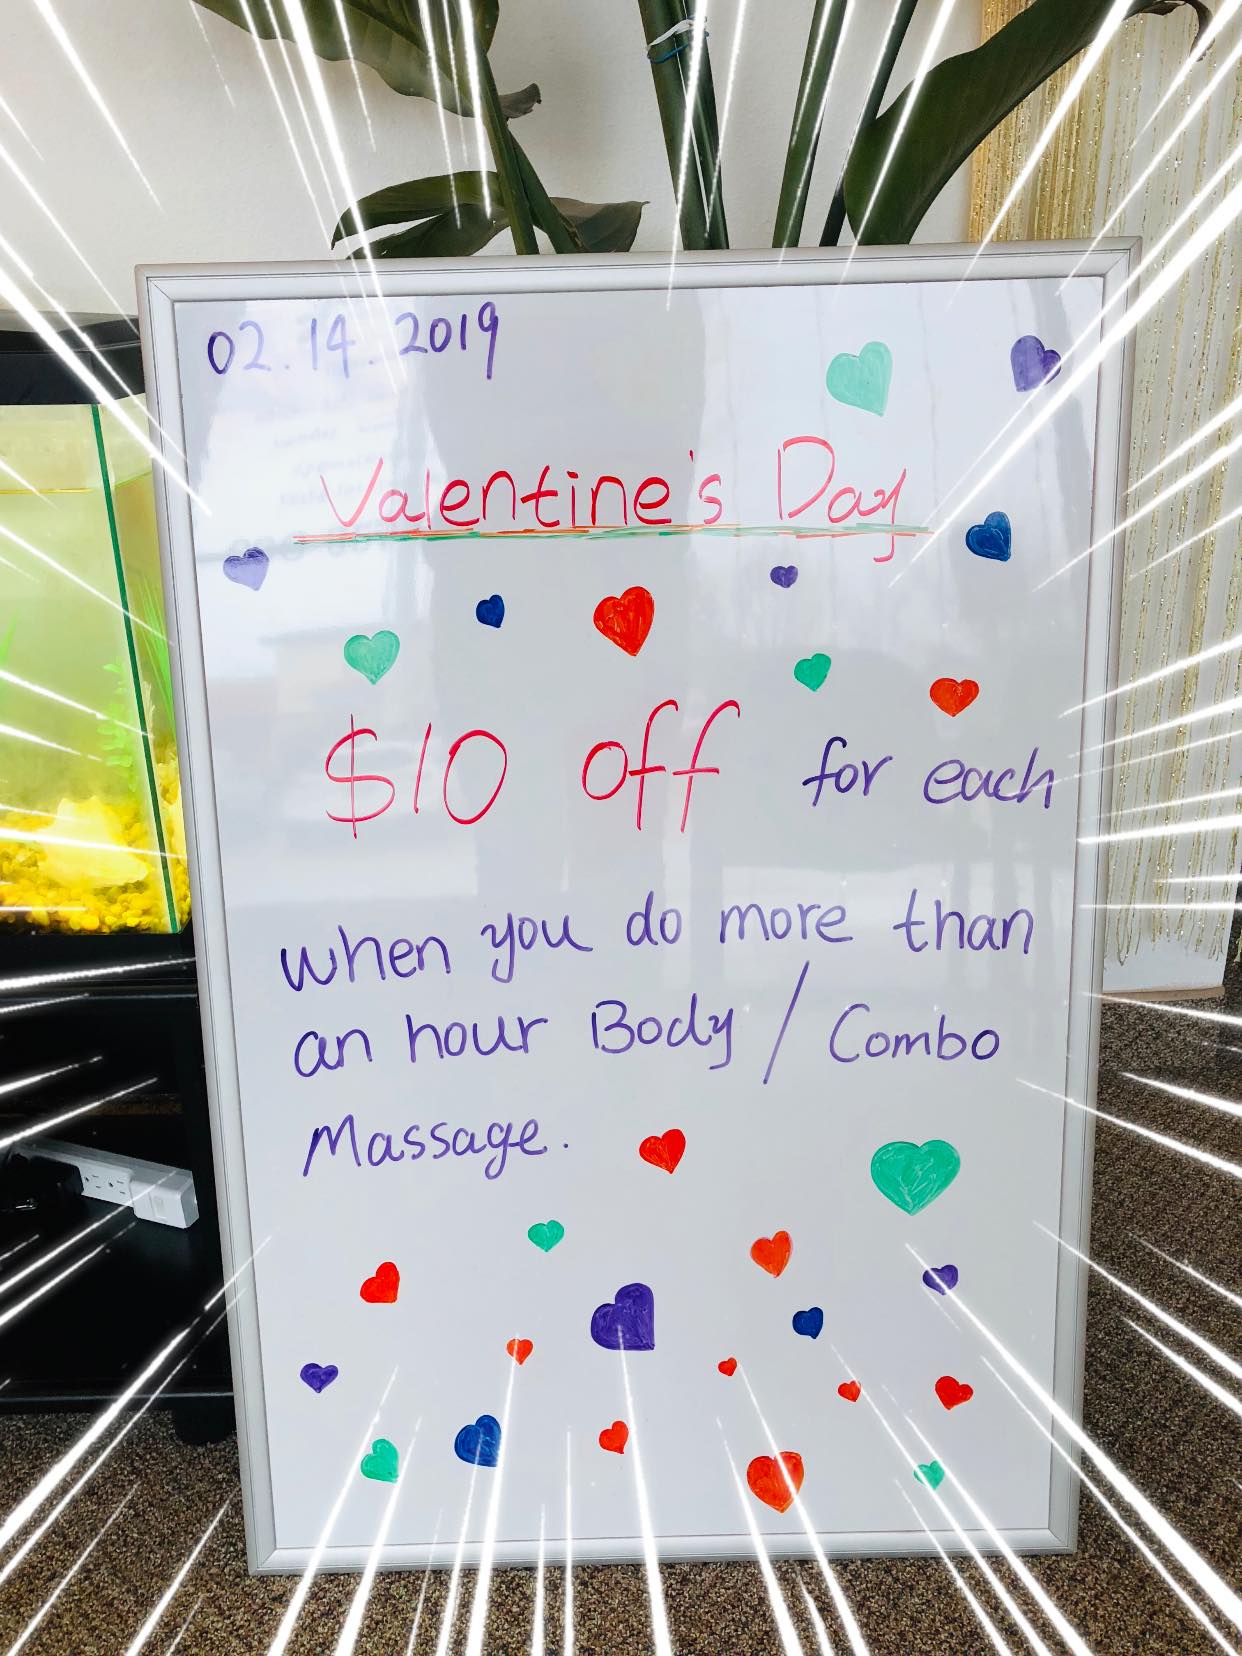 02.14.2019
Valentine's Day
$10 off for each
when you do more than
an hour Body / Combo
Massage.